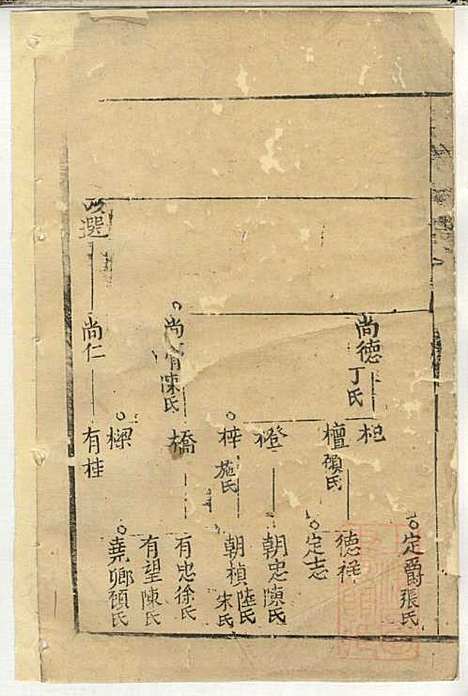 尚德丁氏
尚賓陳氏
尚仁
以選
桓
檀顧氏
橙
梓施氏
橋
樑
有桂
定爵張氏
德程
定志
朝忠陳氏
朝楨陸氏朱氏
有忠徐氏
有望陳氏
堯卿顧氏